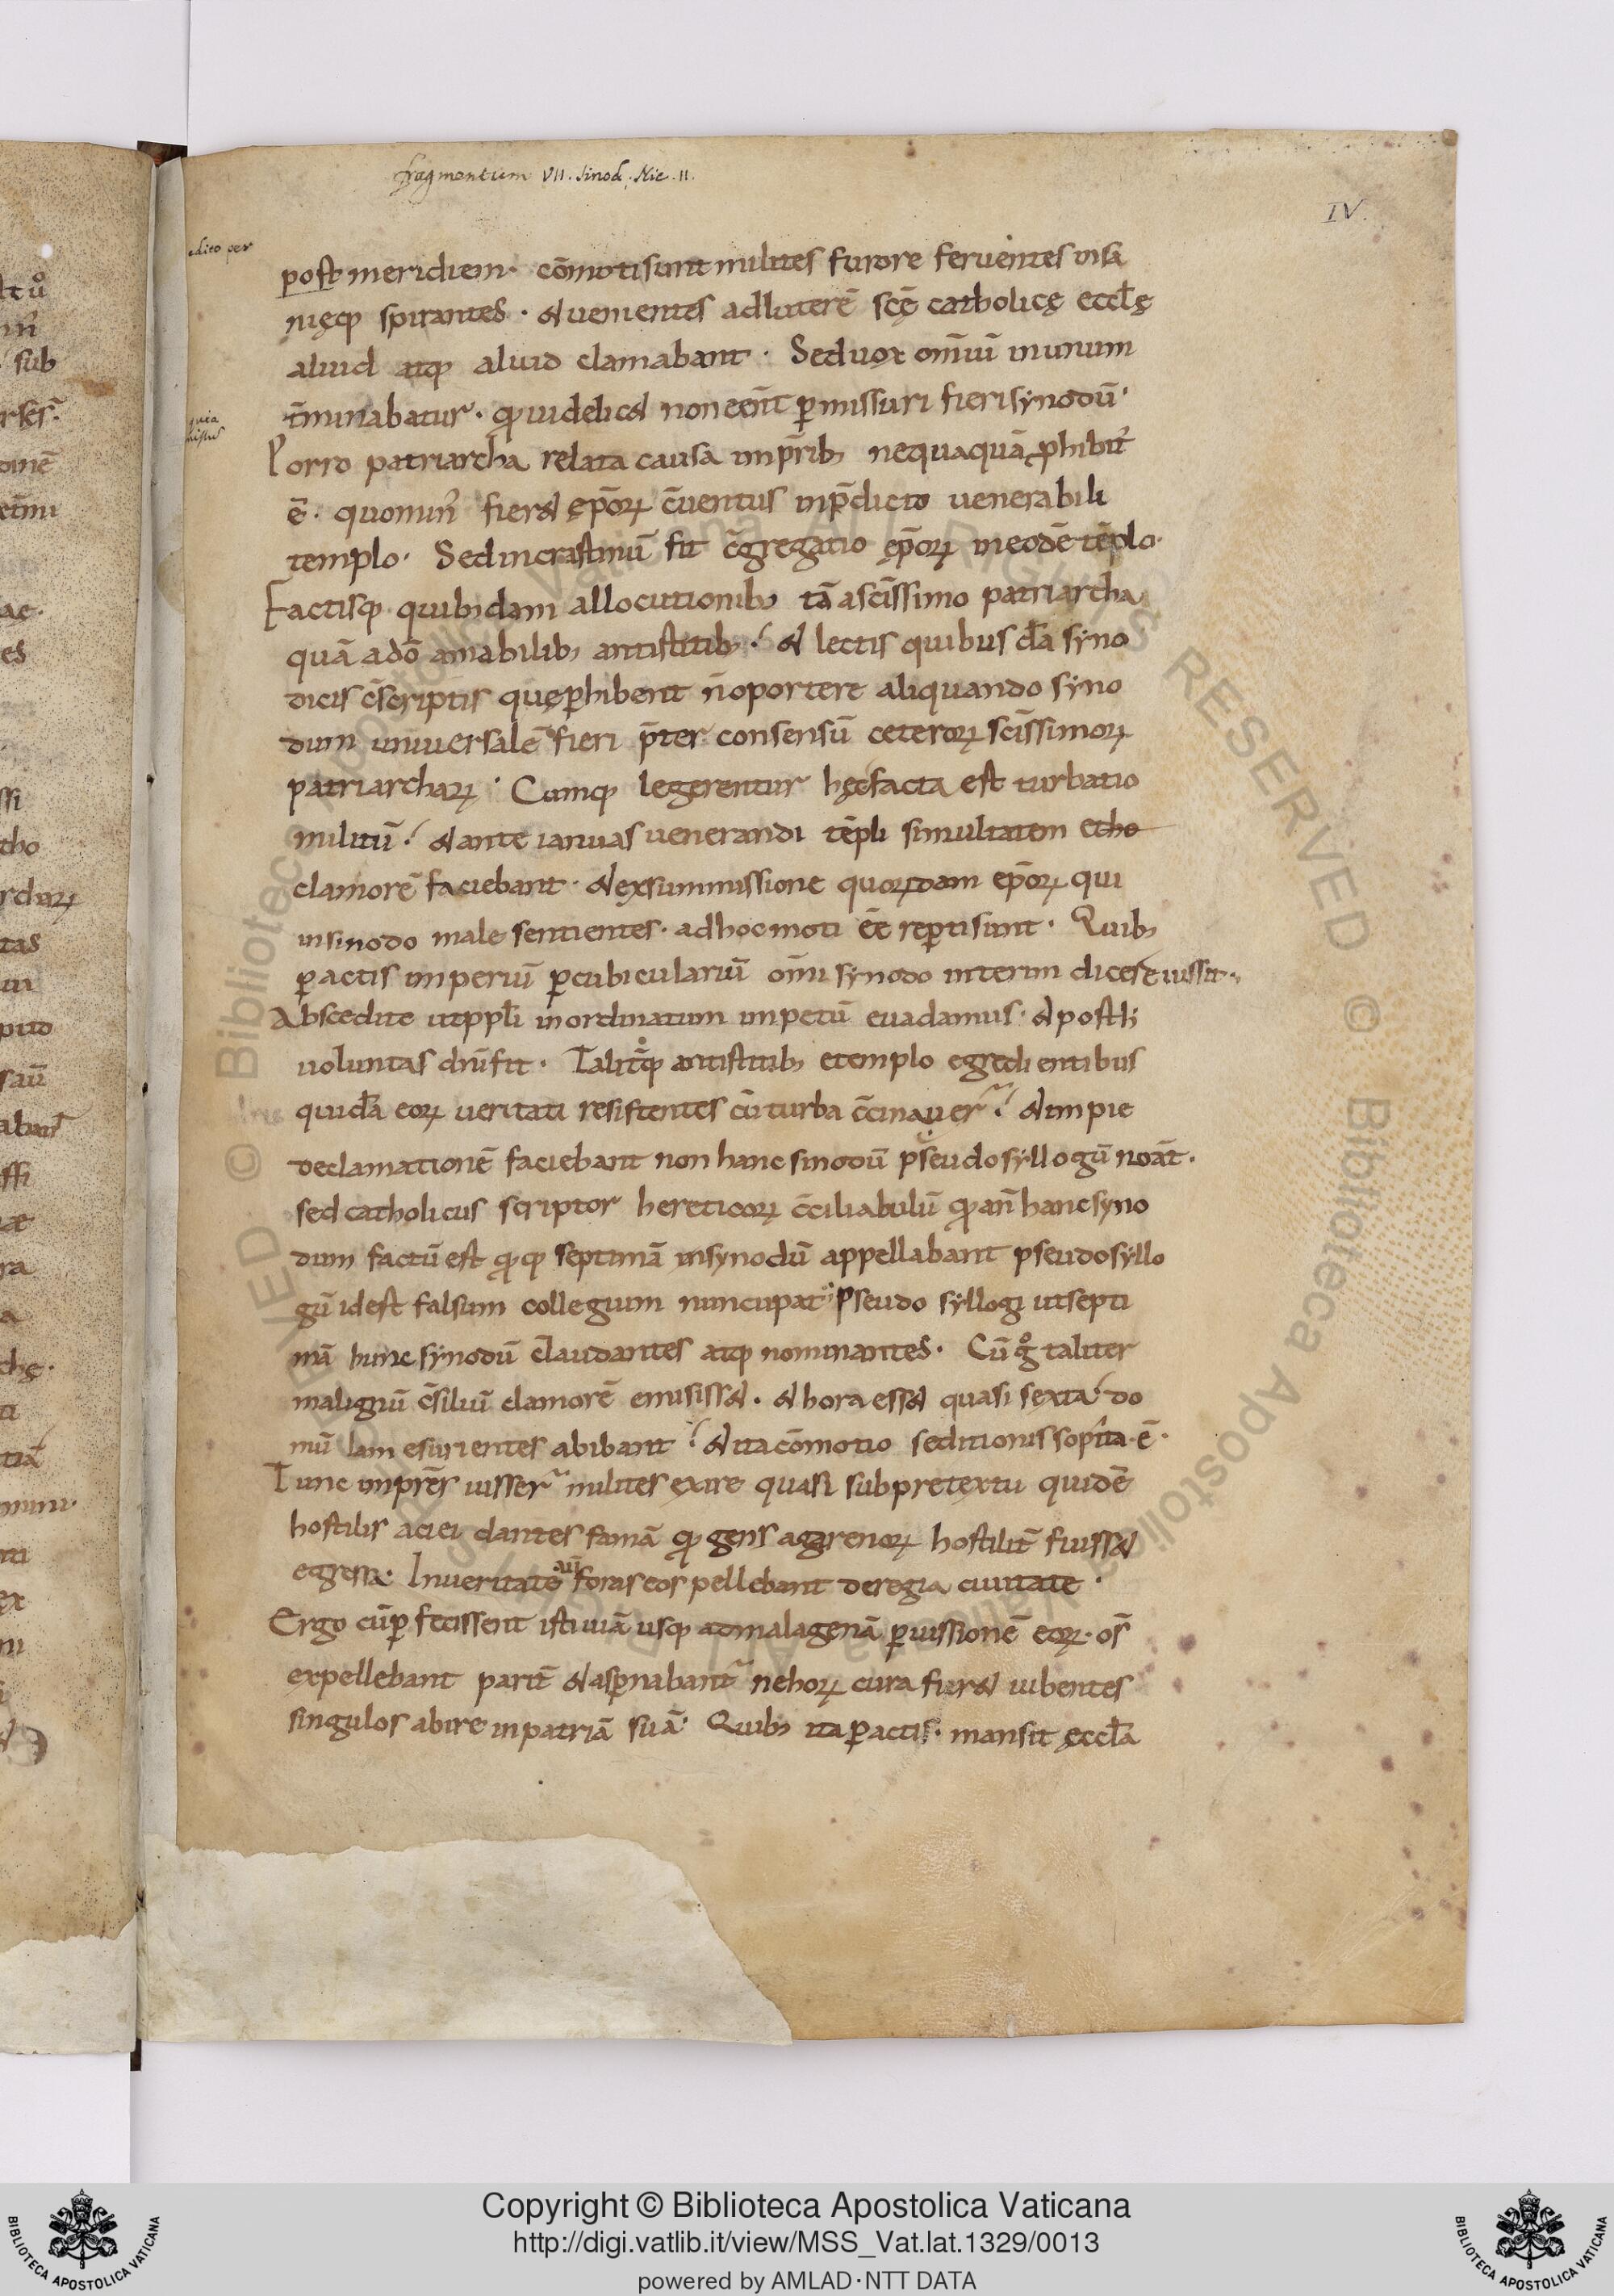 fragmentum VII. Sinod. Nic. II.
IV.
edito per
post meridiem· cōmoti sunt milites furore feruentes insa
nięq; spirantes · & uenientes ad luterē scę̄ catholicę eccl̄ę
aliud atq; aliud clamabant · Sed uox om̄iū in unum
t̄minabatur · qđ uidelic& non eēnt p̱missuri fieri synodū·
Porro patriarcha relata causa imp̄rib; nequaquā ꝓhibit᷒
ē· quomin᷒ fier& ęp̄oꝝ c̄uentus in p̄dicto uenerabili
templo· Sed in crastinū fit c̄gregatio ęp̄oꝝ in eodē tēplo·
Factisq; quib;dam allocutionib; tā a sc̄issimo patriarcha
quā a dō amabilib; antistitib; · & lectis quibusdā syno
dicis c̄scriptis quę ꝑhibent n̄ oportere aliquando syno
dum uniuersalē fieri p̄ter consensū ceteroꝝ sc̄issimoꝝ
patriarchaꝝ· Cumq; legerentur hęc facta est turbatio
militū· & ante ianuas uenerandi tēpli simultatem etho
clamorē faciebant· & ex summissione quoꝝdam ep̄oꝝ qui
in sinodo male sentientes· ad hoc moti eē rep̱ti sunt· Quib;
ꝑactis imperiū ꝑ cubiculariū om̄i synodo interim dicere iussit·
Abscedite ut ppl̄i inordinatum impetū euadamus· & post h̄
uoluntas dn̄i fit· Talit̄q; antistitib; e templo egredientibus
quidā eoꝝ ueritati resistentes cū turba c̄cinauer̄· & impie
declamationē faciebant non hanc sinodū pseudosyllogū noāt·
sed catholicus scriptor hereticoꝝ c̄ciliabulū qđ an̄ hanc syno
dum factū est qđq; septimā in synodū appellabant pseudosyllo
gū id est falsum collegium nuncupat· pseudo syllogi ut septi
mā hunc synodū claudantes atq; nominantes· Cū g̊ taliter
malignū c̄siliū clamorē emisiss&· & hora ess& quasi sexta· do
mū iam esurientes abibant · & ita cōmotio seditionis sopita· ē·
Tunc imp̄res iusser̄ milites exire quasi sub pretextu quidē
hostilis aciei dantes famā qđ gens agarenoꝝ hostilit̄ fuiss&
egressa· In ueritate aū foras eos pellebant de regia ciuitate·
Ergo cū ꝑfecissent isti uiā usq; ad malagenā ꝑ iussionē eoꝝ· os̄
expellebant parit̄ & asꝑnabant᷑ ne hoꝝ cura fier& iubentes
singulos abire in patriā suā· Quib; ita ꝑactis· mansit ęccl̄a
Copyright © Biblioteca Apostolica Vaticana
http://digi.vatlib.it/view/MSS_Vat.lat.1329/0013
powered by AMLAD·NTT DATA